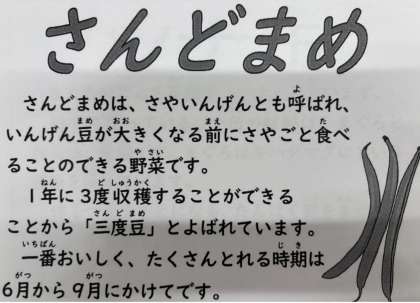 さんどまめ
さんどまめは、さやいんげんとも呼ばれ、
いんげん豆が大きくなる前にさやごと食べ
ることのできる野菜です。
1年に3度収穫することができる
ことから「三度豆」とよばれています。
一番おいしく、たくさんとれる時期は
6月から9月にかけてです。